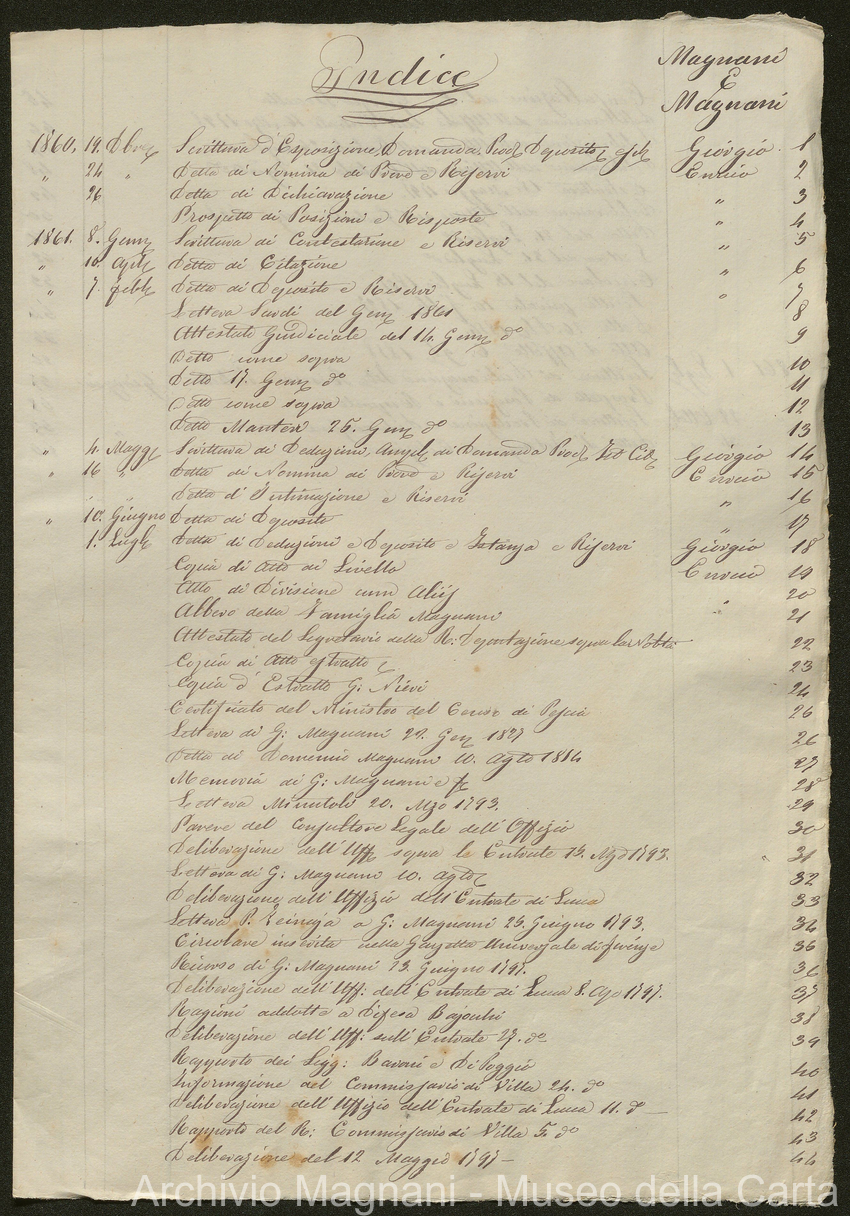 Indice
Magnani
E
Magnani
1860. 19. Dbre Scrittura d'Esposizione, Domanda Prod. Deposito Giorgio 1
" 24 " Detta di Nomina di Proc. e Riservi Curcio 2
26 Detta di Dichiarazione " 3
Prospetto di Posizioni e Risposte " 4
1861. 8. Genn Scrittura di Contestazione e Riservi " 5
" 10. Detta di Citazione " 6
" 7. febb Detta di Deposito e Riservi " 7
Lettera Sardi del Genn 1861 8
Attestato Giudiciale del 14. Genn do 9
Detto come sopra 10
Detto 17. Genn do 11
Detto come sopra 12
Detto Manteri 25. Genn do 13
" 4. Magg Scrittura di Deduzioni, di Domanda Prod. Giorgio 14
" 16 " Detta di Nomina di Proc. e Riservi Curcio 15
Detta d'Intimazione e Riservi " 16
" 10. Giugno Detta di Deposito " 17
1. Lugl Detta di Deduzioni e Deposito e Istanza e Riservi Giorgio 18
Copia di Atto di Livello Curcio 19
Atto di Divisione 20
Albero della Famiglia Magnani " 21
Attestato del Segretario della R: Deputazione sopra la Nobtà 22
Copia di Atto estratto 23
Copia d'Estratto G. Nieri 24
Certificato del Ministro del Censo di Pescia 26
Lettera di G: Magnani 22. Gen 1827 26
Detta di Domenico Magnani 10. Agto 1814 27
Memoria di G: Magnani e 28
Lettera Minutoli 20. Mzo 1793. 29
Parere del Consultore Legale dell'Offizio 30
Deliberazione dell'Uff. sopra le Entrate 13. Ago 1793. " 31
Lettera di G: Magnani 10. Agto 32
Deliberazione dell'Uffizio dell'Entrate di Lucca 33
Lettera P. a G: Magnani 23. Giugno 1793. 34
Circolare inserita nella Gazzetta Universale di firenze 36
Ricorso di G: Magnani 13. Giugno 1797. 36
Deliberazione dell'Uff: dell'Entrate di Lucca 8. Ago 1797. 37
Ragioni addotte a Difesa 38
Deliberazione dell'Uff: sull'Entrate 27. do 39
Rapporto dei Sigg: Baroni e Di Poggio 40
Informazione del Commissario di Villa 24. do 41
Deliberazione dell'Uffizio dell'Entrate di Lucca 11. do 42
Rapporto del R: Commissario di Villa 5. do 43
Deliberazione del 12 Maggio 1797 44
Archivio Magnani - Museo della Carta